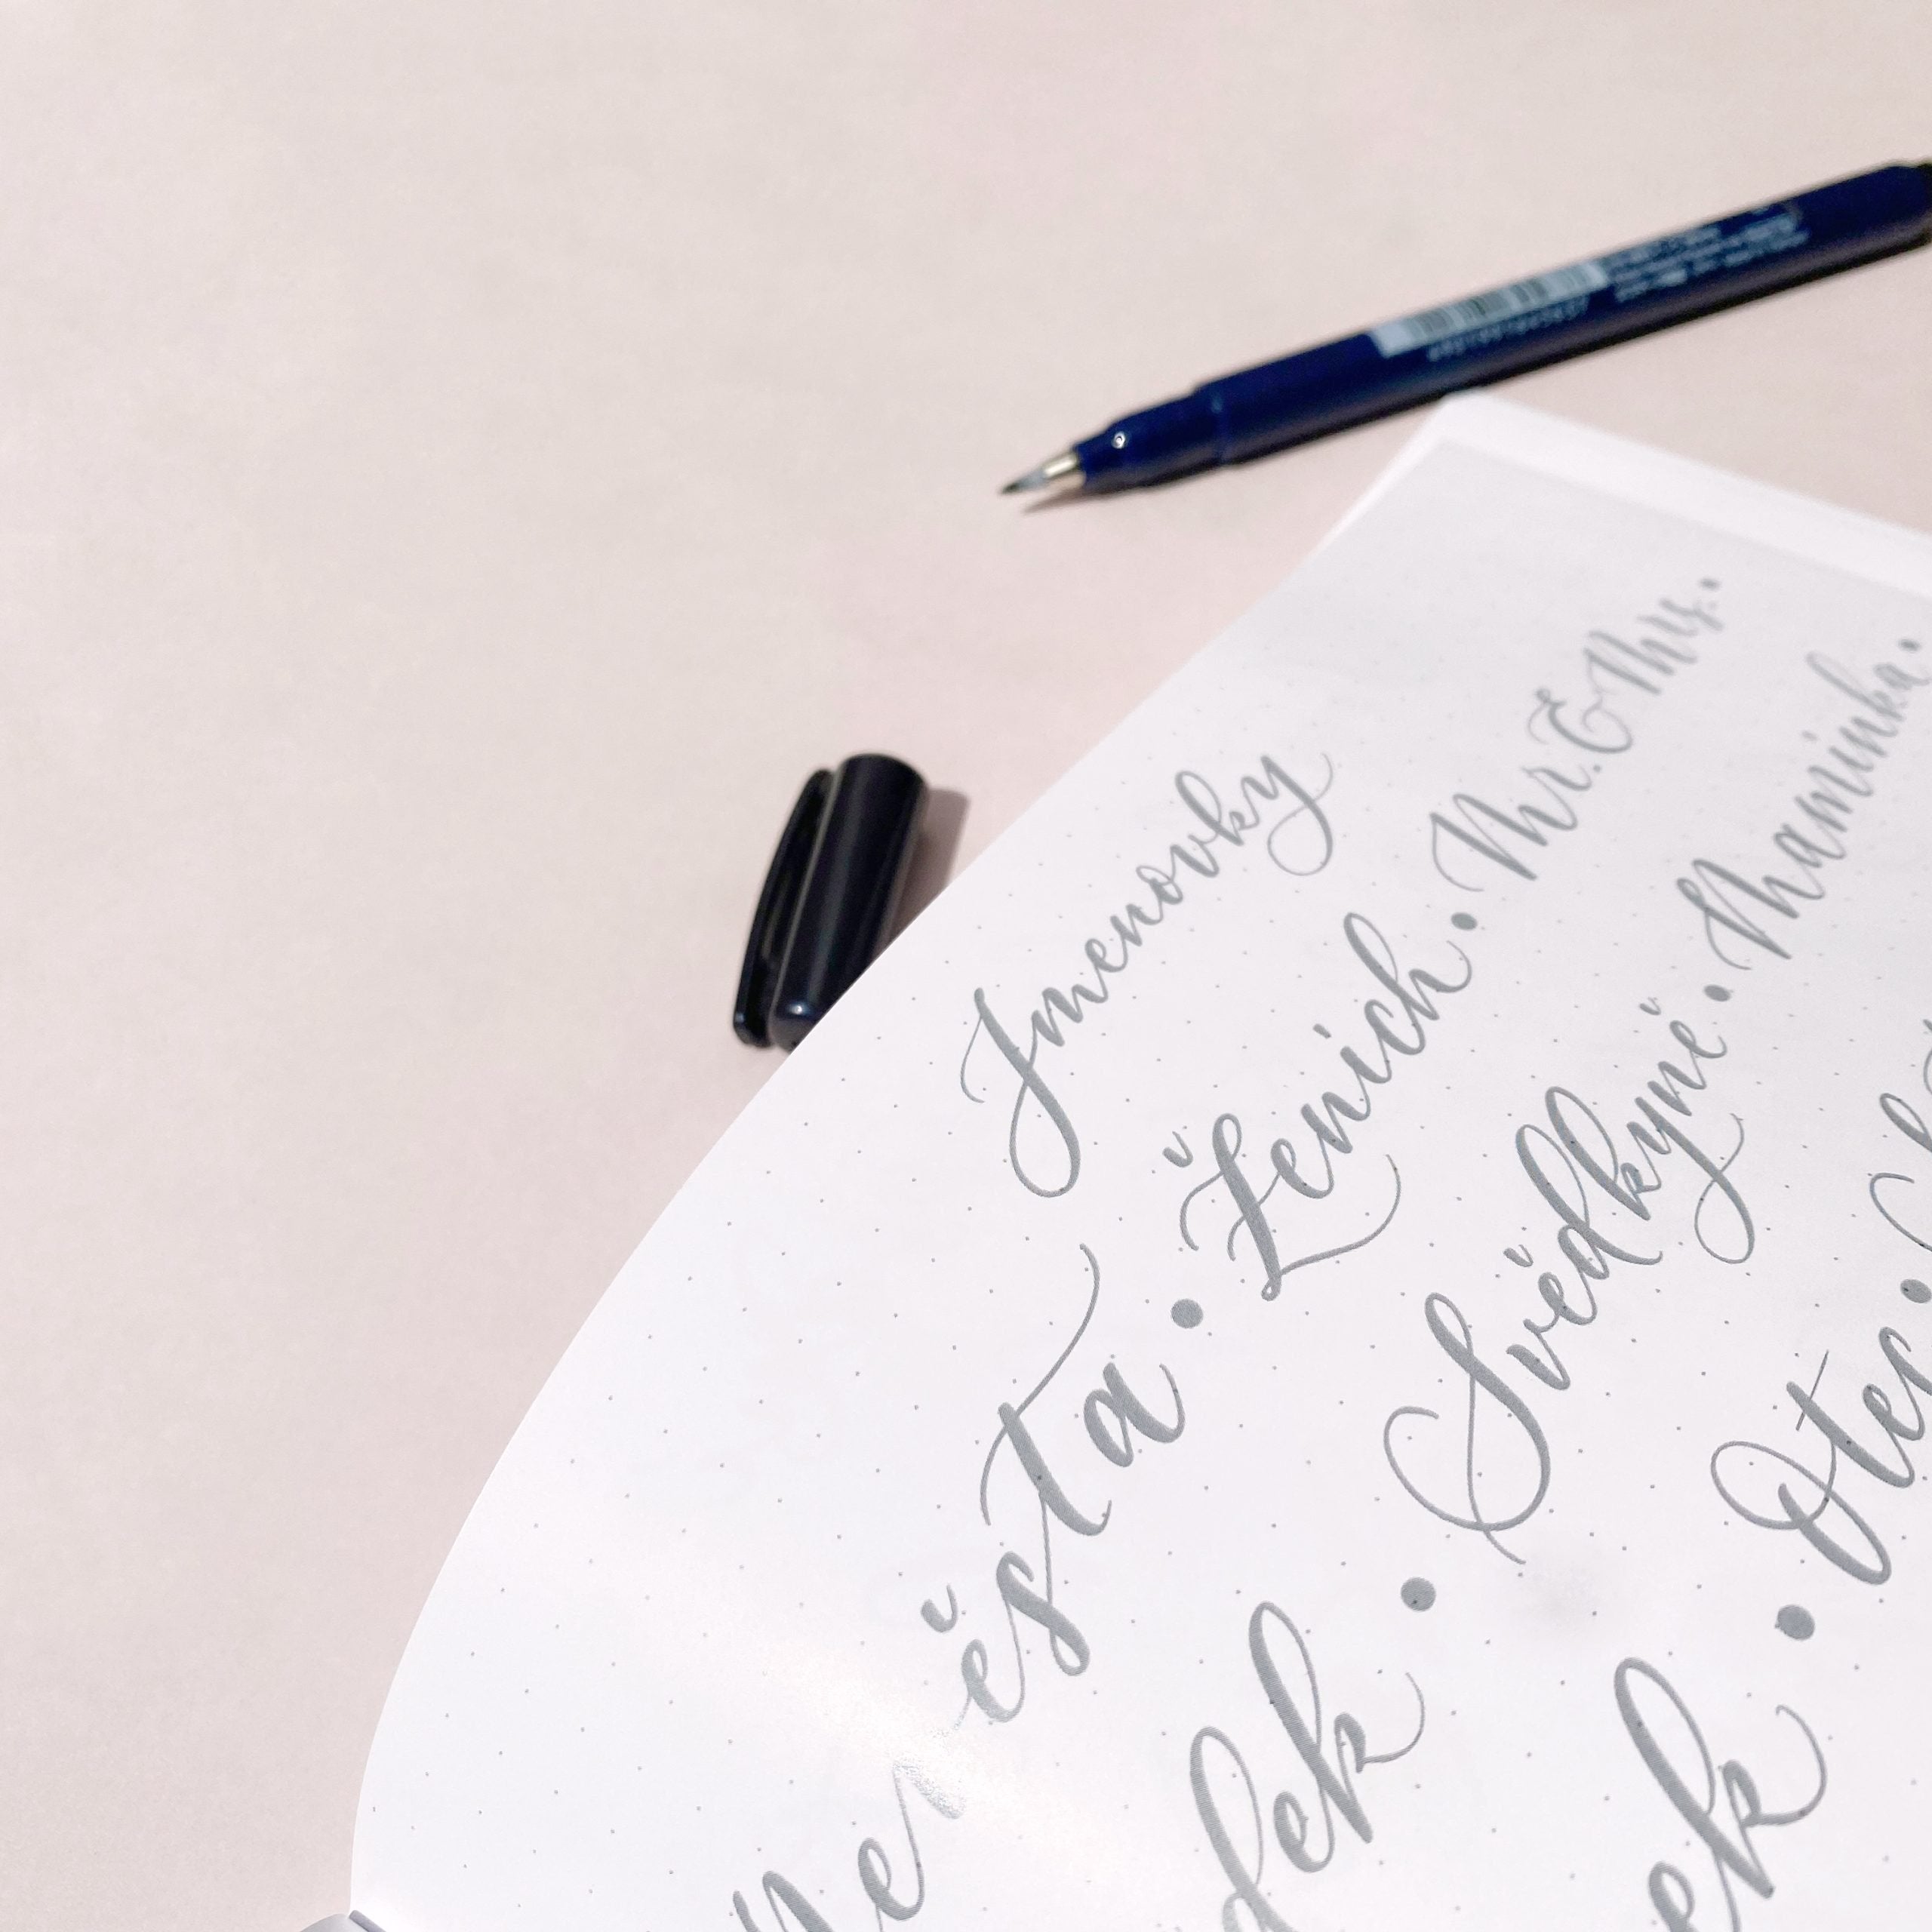 Jmenovky
Nevěsta • Ženich • Mr. & Mrs. •
dek • Svědkyně • Maminka •
ek • Otec •